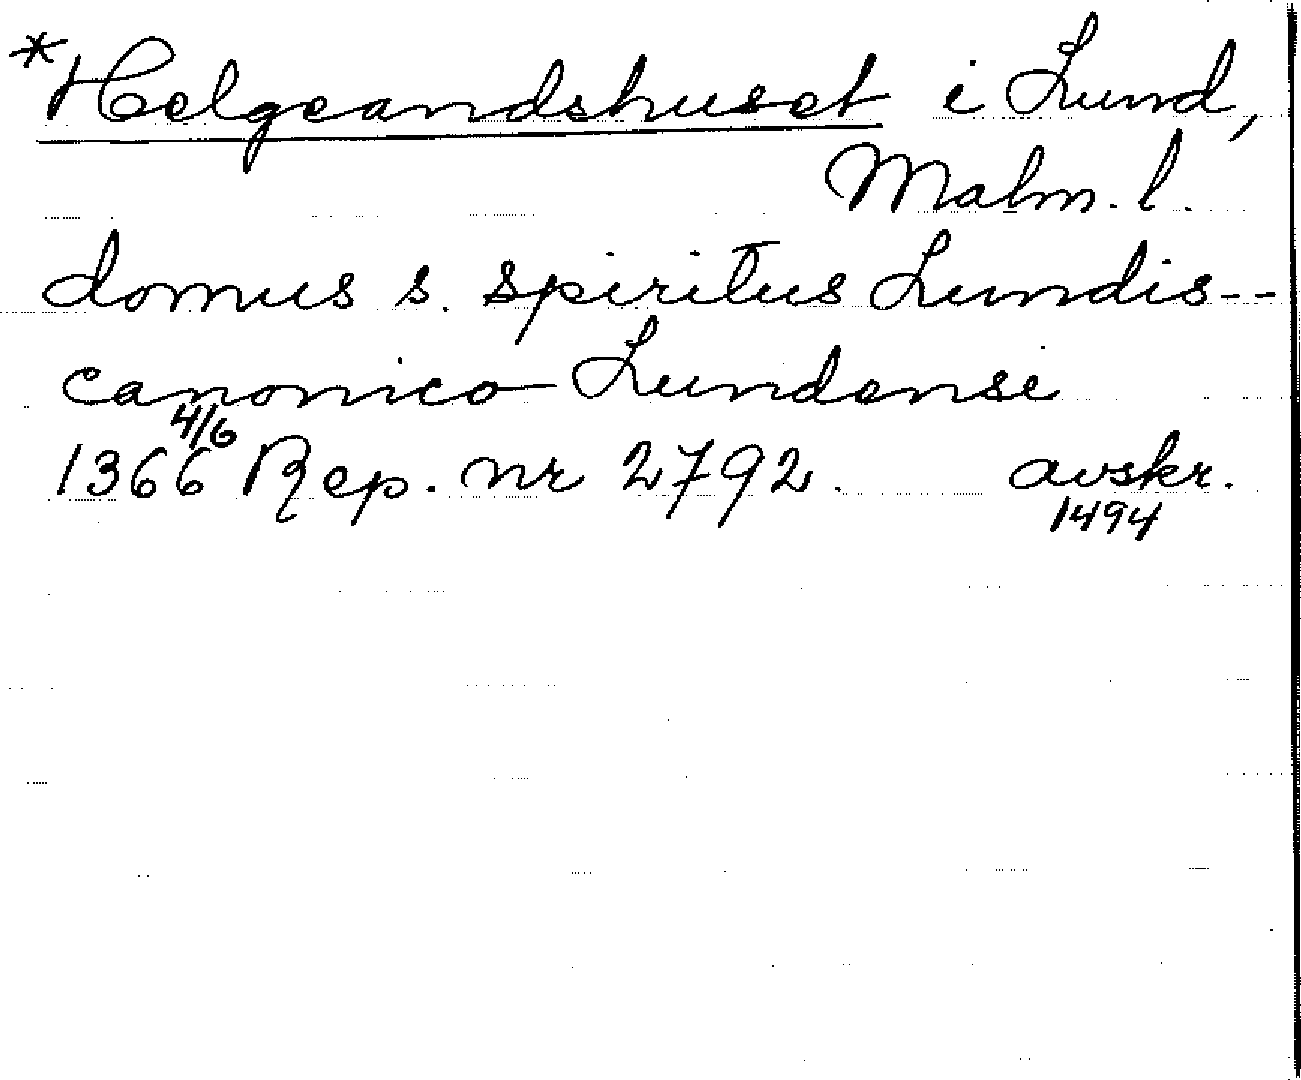 *Helgeandshuset i Lund,
Malm. l.
domus s. spiritus Lundis--
canonico Lundense
1366 4/6 Rep. nr 2792. avskr.
1494